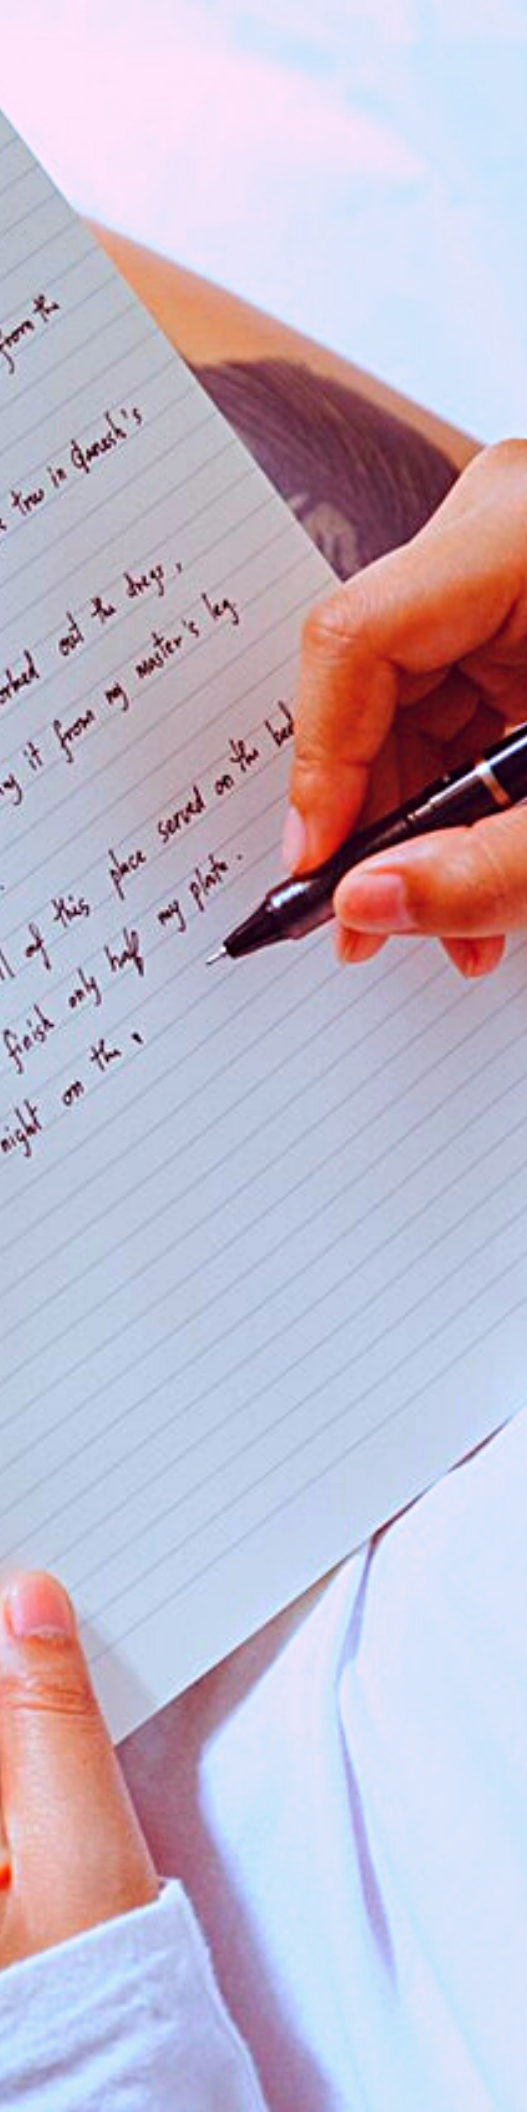 from the
tree in Ganesh's
out the dregs,
it from my master's leg
of this place served on the bed
finish only half my plate.
night on the